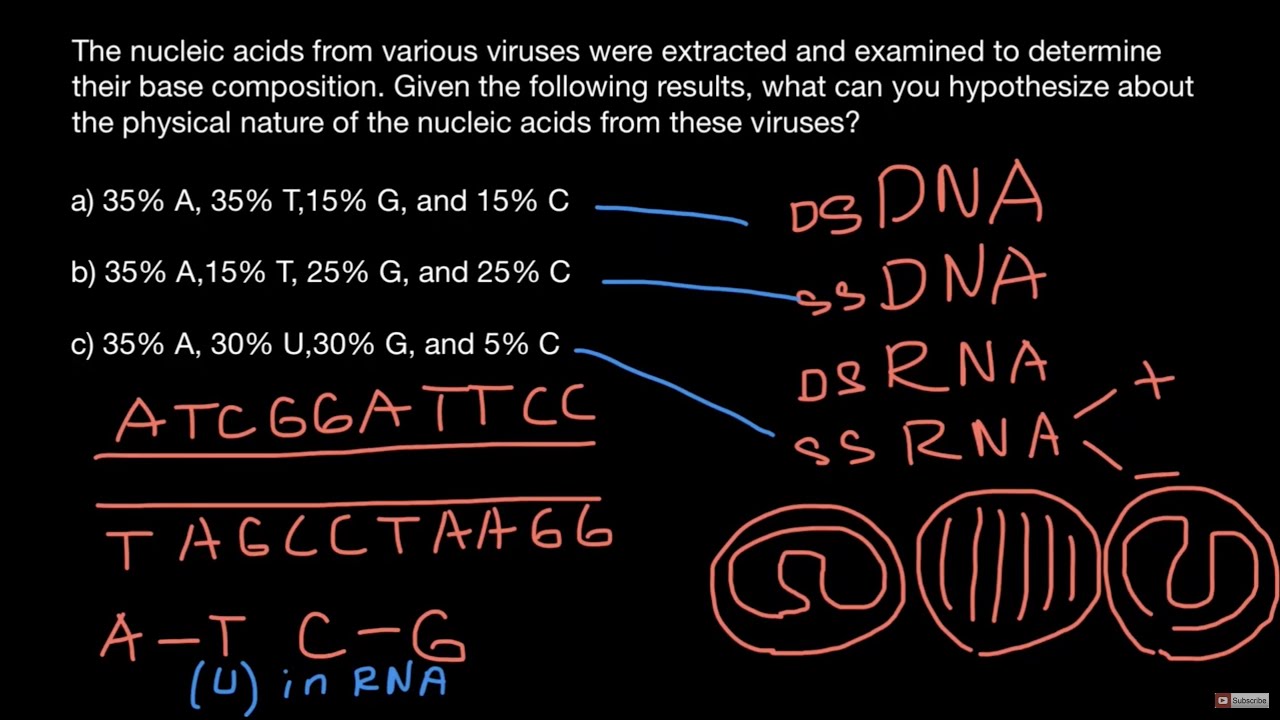 The nucleic acids from various viruses were extracted and examined to determine
their base composition. Given the following results, what can you hypothesize about
the physical nature of the nucleic acids from these viruses?
a) 35% A, 35% T,15% G, and 15% C
DS DNA
b) 35% A,15% T, 25% G, and 25% C
SS DNA
c) 35% A, 30% U,30% G, and 5% C
DS RNA
SS RNA
+
−
ATCGGATTCC
TAGCCTAAGG
A – T C – G
(U) in RNA
Subscribe